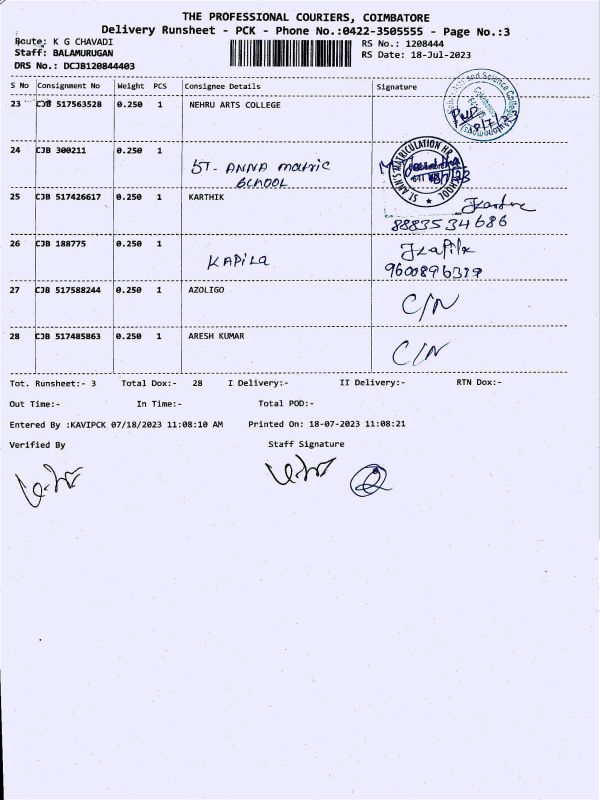 THE PROFESSIONAL COURIERS, COIMBATORE
Delivery Runsheet - PCK - Phone No.:0422-3505555 - Page No.:3
Route: K G CHAVADI
RS No.: 1208444
Staff: BALAMURUGAN
RS Date: 18-Jul-2023
DRS No.: DCJB120844403
S No Consignment No Weight PCS Consignee Details Signature
23 CJB 517563528 0.250 1 NEHRU ARTS COLLEGE
24 CJB 300211 0.250 1
ST. ANNA matric
SCHOOL
25 CJB 517426617 0.250 1 KARTHIK
8883534686
26 CJB 188775 0.250 1
KAPILA
9600896319
27 CJB 517588244 0.250 1 AZOLIGO
C/N
28 CJB 517485863 0.250 1 ARESH KUMAR
C/N
Tot. Runsheet:- 3 Total Dox:- 28 I Delivery:- II Delivery:- RTN Dox:-
Out Time:- In Time:- Total POD:-
Entered By :KAVIPCK 07/18/2023 11:08:10 AM Printed On: 18-07-2023 11:08:21
Verified By Staff Signature